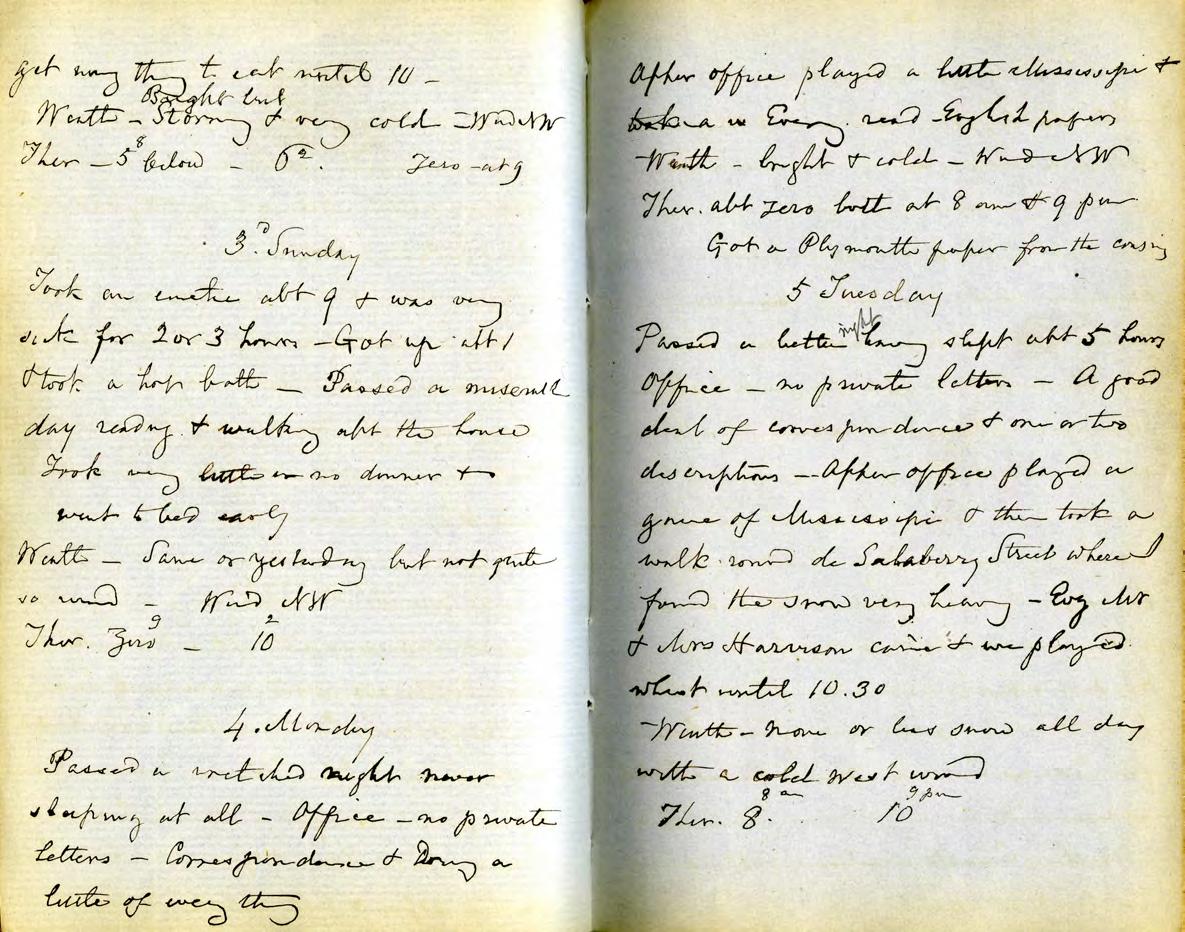 get any thing to eat until 10 -
Bright but
Weath - Stormy & very cold - Wind NW
Ther - 5 8 below - 6 2. Zero - at 9
3d Sunday
Took an emetic abt 9 & was very
sick for 2 or 3 hours - Got up abt 1
& took a hot bath - Passed a miserable
day reading & walking abt the house
Took very little or no dinner &
went to bed early
Weath - Same as yesterday but not quite
so wind - Wind NW
Ther. Zero 9 - 10 2
4. Monday
Passed a wretched night never
sleeping at all - Office - no private
letters - Correspondence & Doing a
little of every thing
After office played a little Mississipi &
in Eveng. read English papers
Weath - bright & cold - Wind NW
Ther. abt zero both at 8 am & 9 pm
Got a Plymouth paper from the
5 Tuesday
night
Passed a better having slept abt 5 hours
Office - no private letters - A good
deal of correspondence & one or two
descriptions - After office played a
game of Mississipi & then took a
walk round de Salaberry Street where I
found the snow very heavy - Evg Mr
& Mrs Harrison came & we played
whist until 10.30
Weath - More or less snow all day
with a cold west wind
8 am 9 pm
Ther. 8. 10